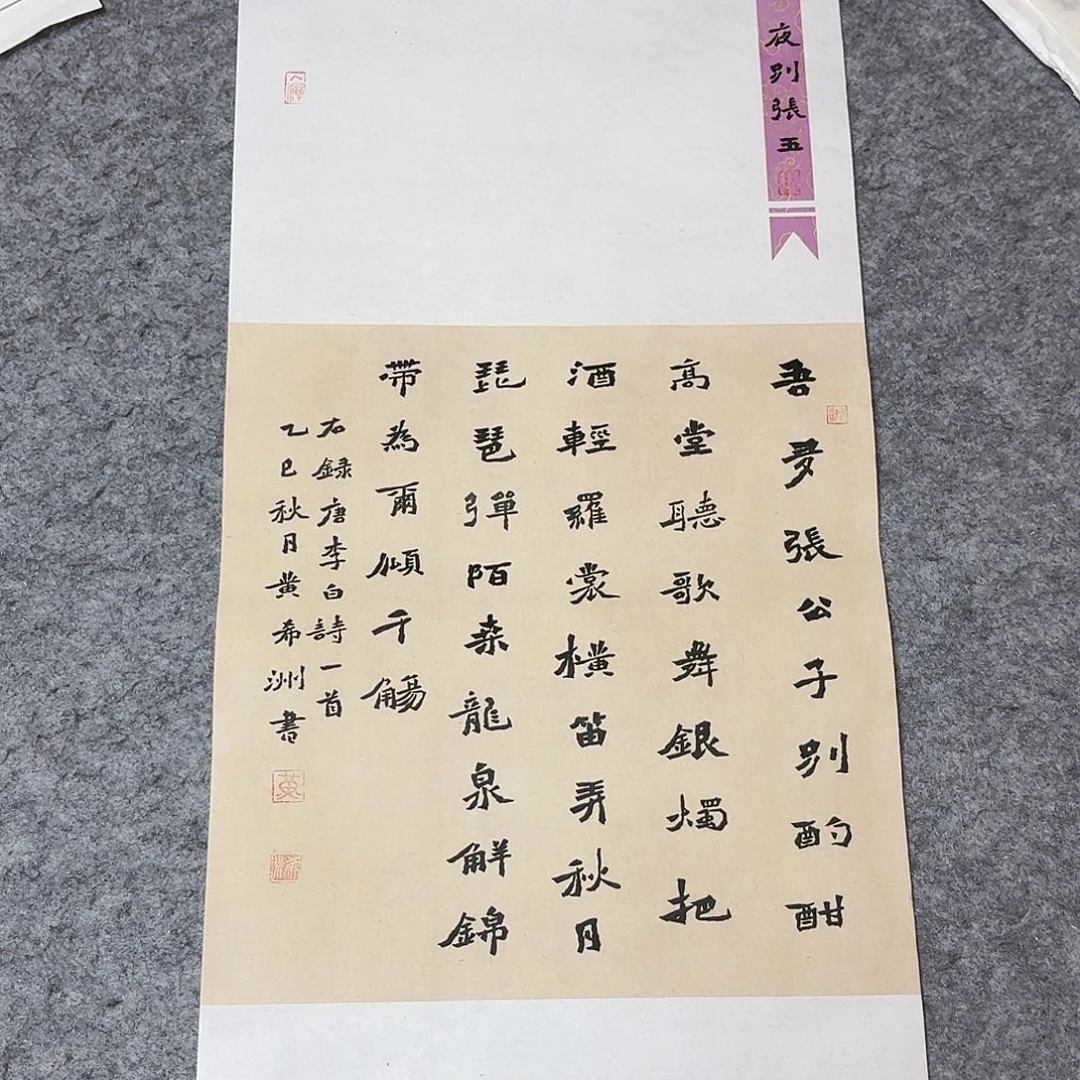 夜别張五
吾多張公子别酌酣
高堂聽歌舞銀燭把
酒輕羅裳橫笛弄秋月
琵琶彈陌桑龍泉解錦
帶為爾傾千觴
右録唐李白詩一首
乙巳秋月黄希洲書
黄